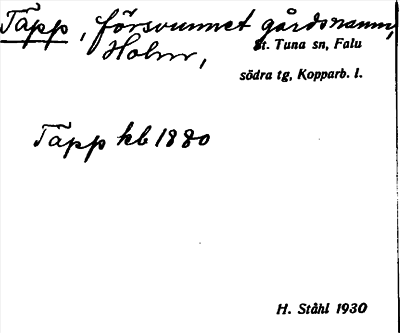 Täpp, försvunnet gårdsnamn,
Holm, St. Tuna sn, Falu
södra tg, Kopparb. l.
Täpp kb 1880
H. Ståhl 1930